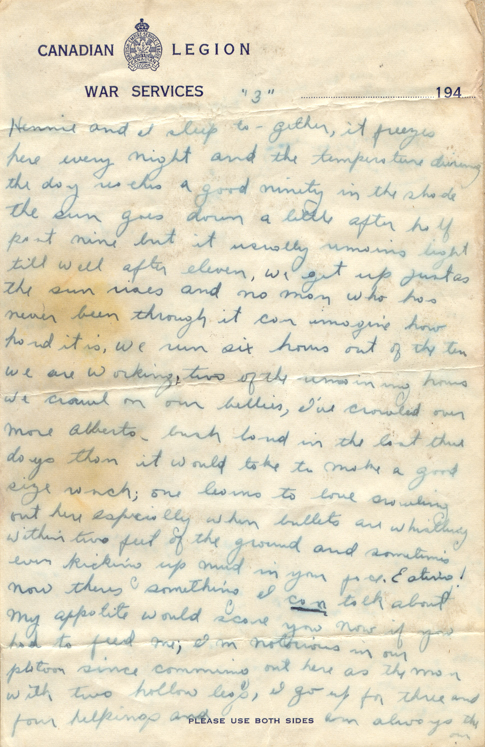 CANADIAN LEGION
WAR SERVICES "3" 194
Hennie and I sleep to-gether, it freezes
here every night and the temperature during
the day reachs a good ninity in the shade
the sun goes down a little after half
past nine but it usually remains light
till well after eleven, we get up just as
the sun rises and no man who has
never been through it can imagine how
hard it is, we run six hours out of the ten
we are working, two of the remaining hours
we crawl on our bellies, I've crawled over
more Alberta bush land in the last three
days than it would take to make a good
size ranch; one learns to love crawling
out here especially when bullets are whistling
within two feet of the ground and sometimes
even kicking up mud in your face. Eating!
now theres something I can talk about
my appetite would scare you now if you
had to feed me, I'm notorious in our
platoon since comming out here as the man
with two hollow legs, I go up for three and
four helpings and am always the
PLEASE USE BOTH SIDES